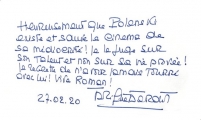 Heureusement que Polanski
existe et sauve le cinema de
sa médiocrité! Je le juge sur
son talent et non sur sa vie privée!
Je regrette de n'avoir jamais tourné
avec lui! Vive Roman!
27.02.20